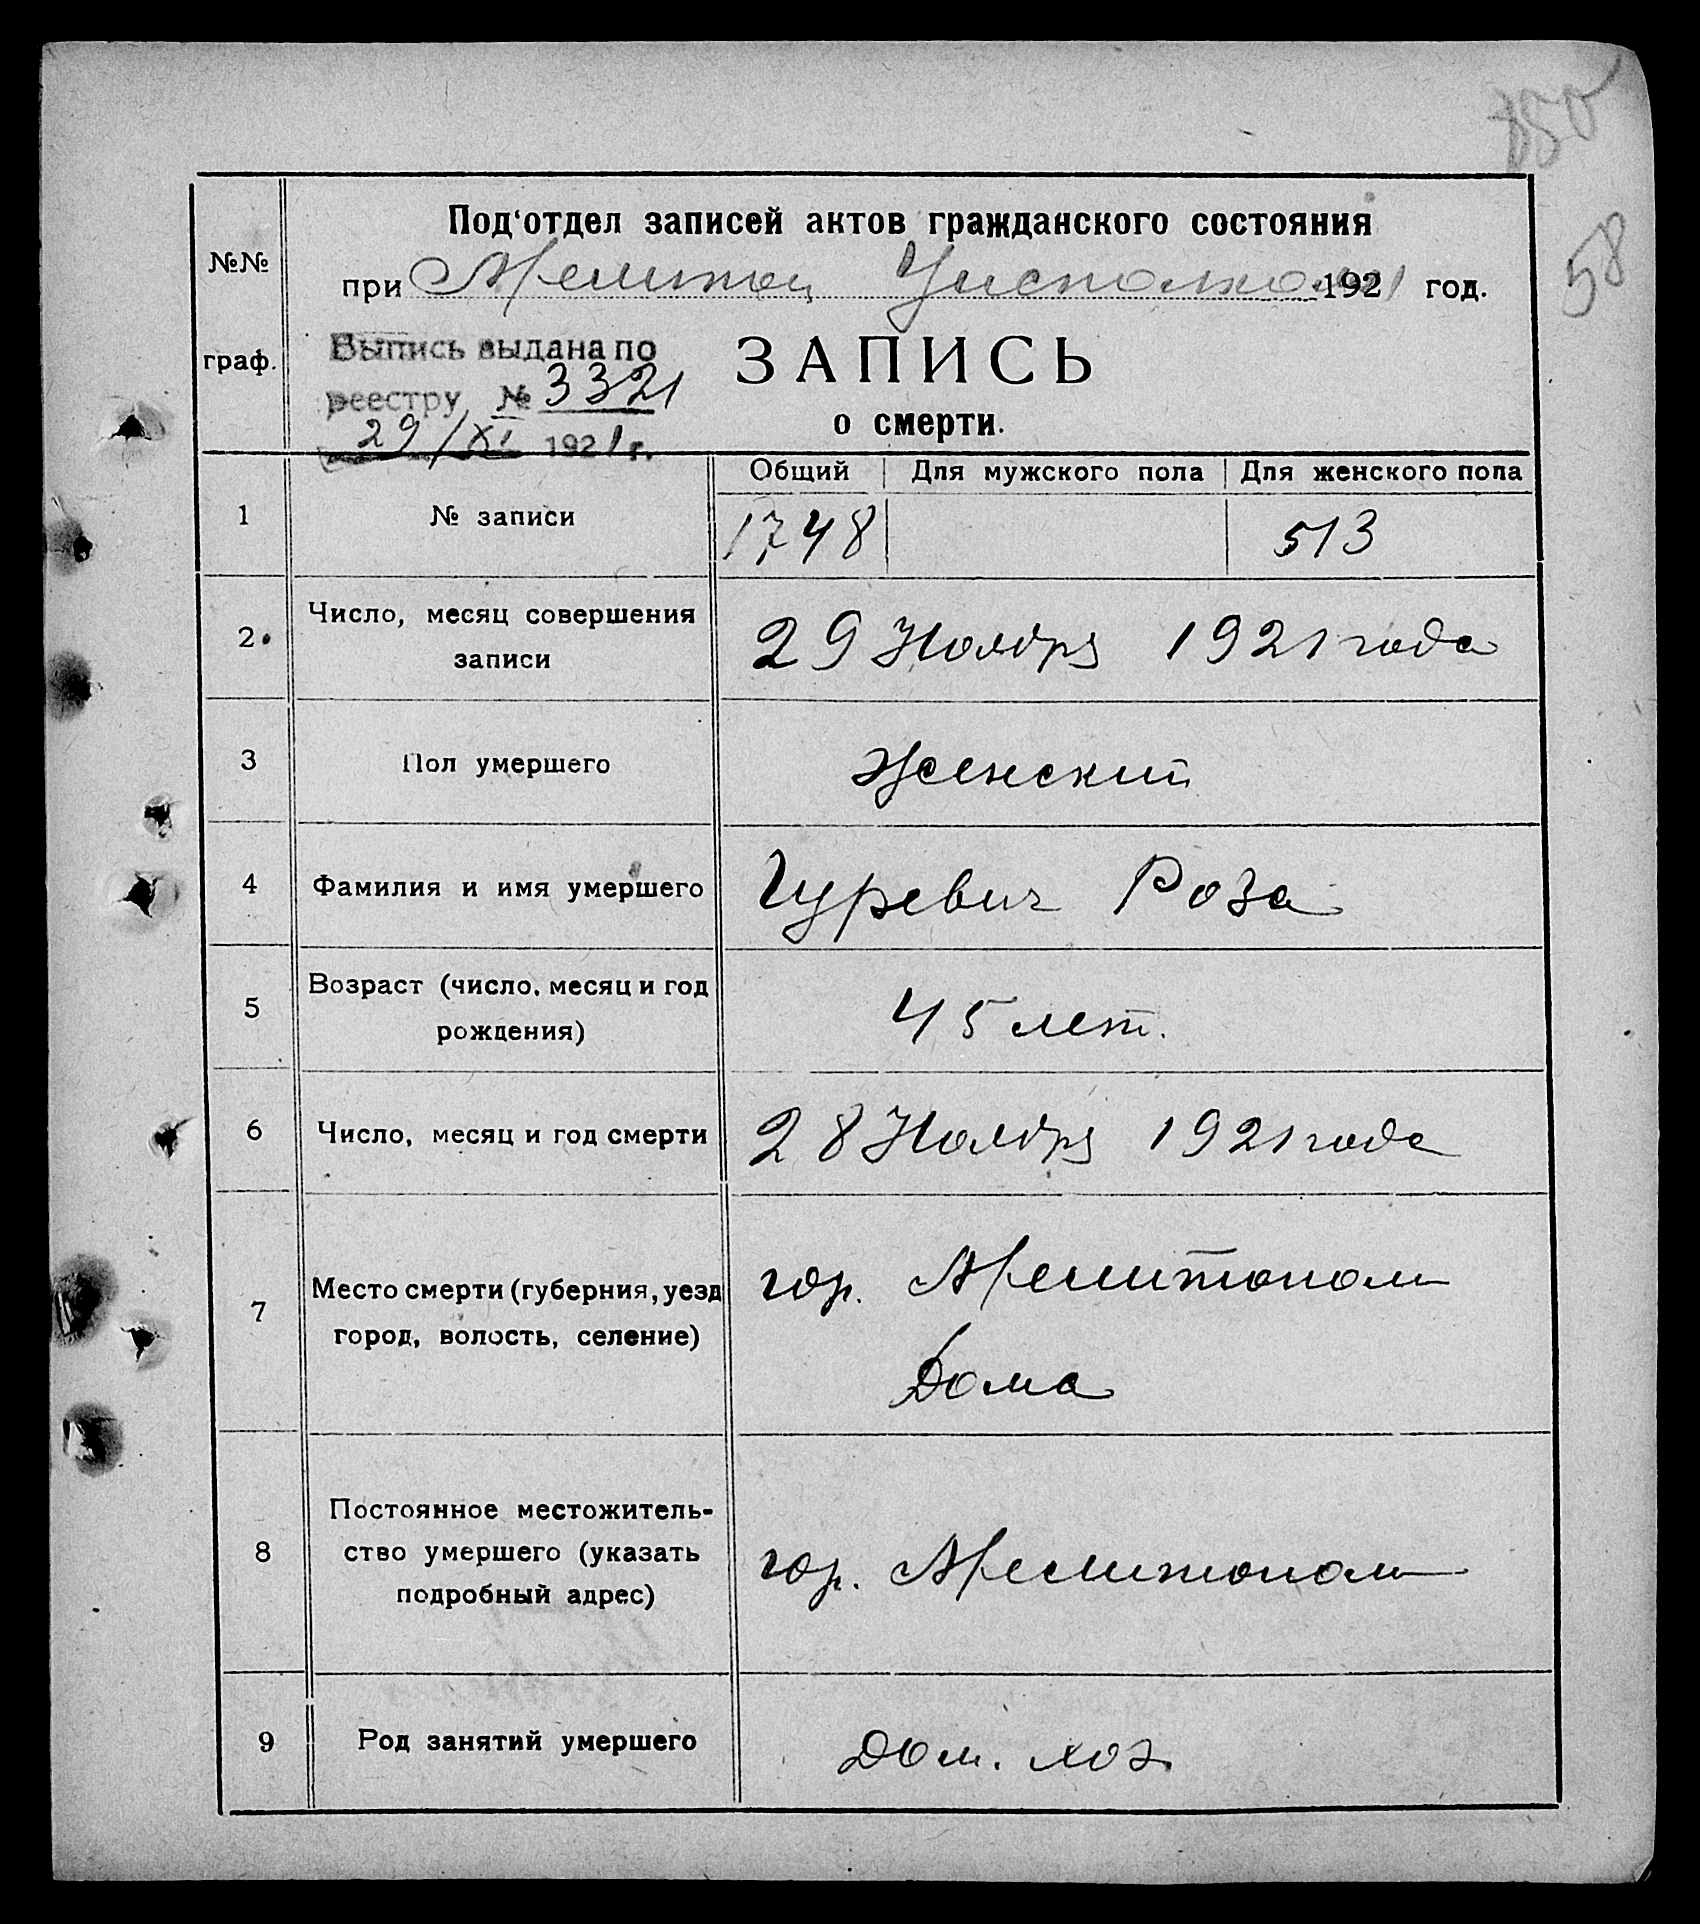 850
58
№№
граф.
Под‘отдел записей актов гражданского состояния
при Мелитоп Уисполком 1921 год.
Выпись выдана по
реестру № 3321
29/XI 1921 г.
ЗАПИСЬ
о смерти.
Общий Для мужского пола Для женского пола
1 № записи 1748 513
2 Число, месяц совершения
записи
29 Ноября 1921 года
3 Пол умершего женский
4 Фамилия и имя умершего Гуревич Роза
5 Возраст (число, месяц и год
рождения)
45 лет.
6 Число, месяц и год смерти 28 Ноября 1921 года
7 Место смерти (губерния, уезд
город, волость, селение)
гор. Мелитополь
Дома
8 Постоянное местожитель-
ство умершего (указать
подробный адрес)
гор. Мелитополь
9 Род занятий умершего Дом. хоз.